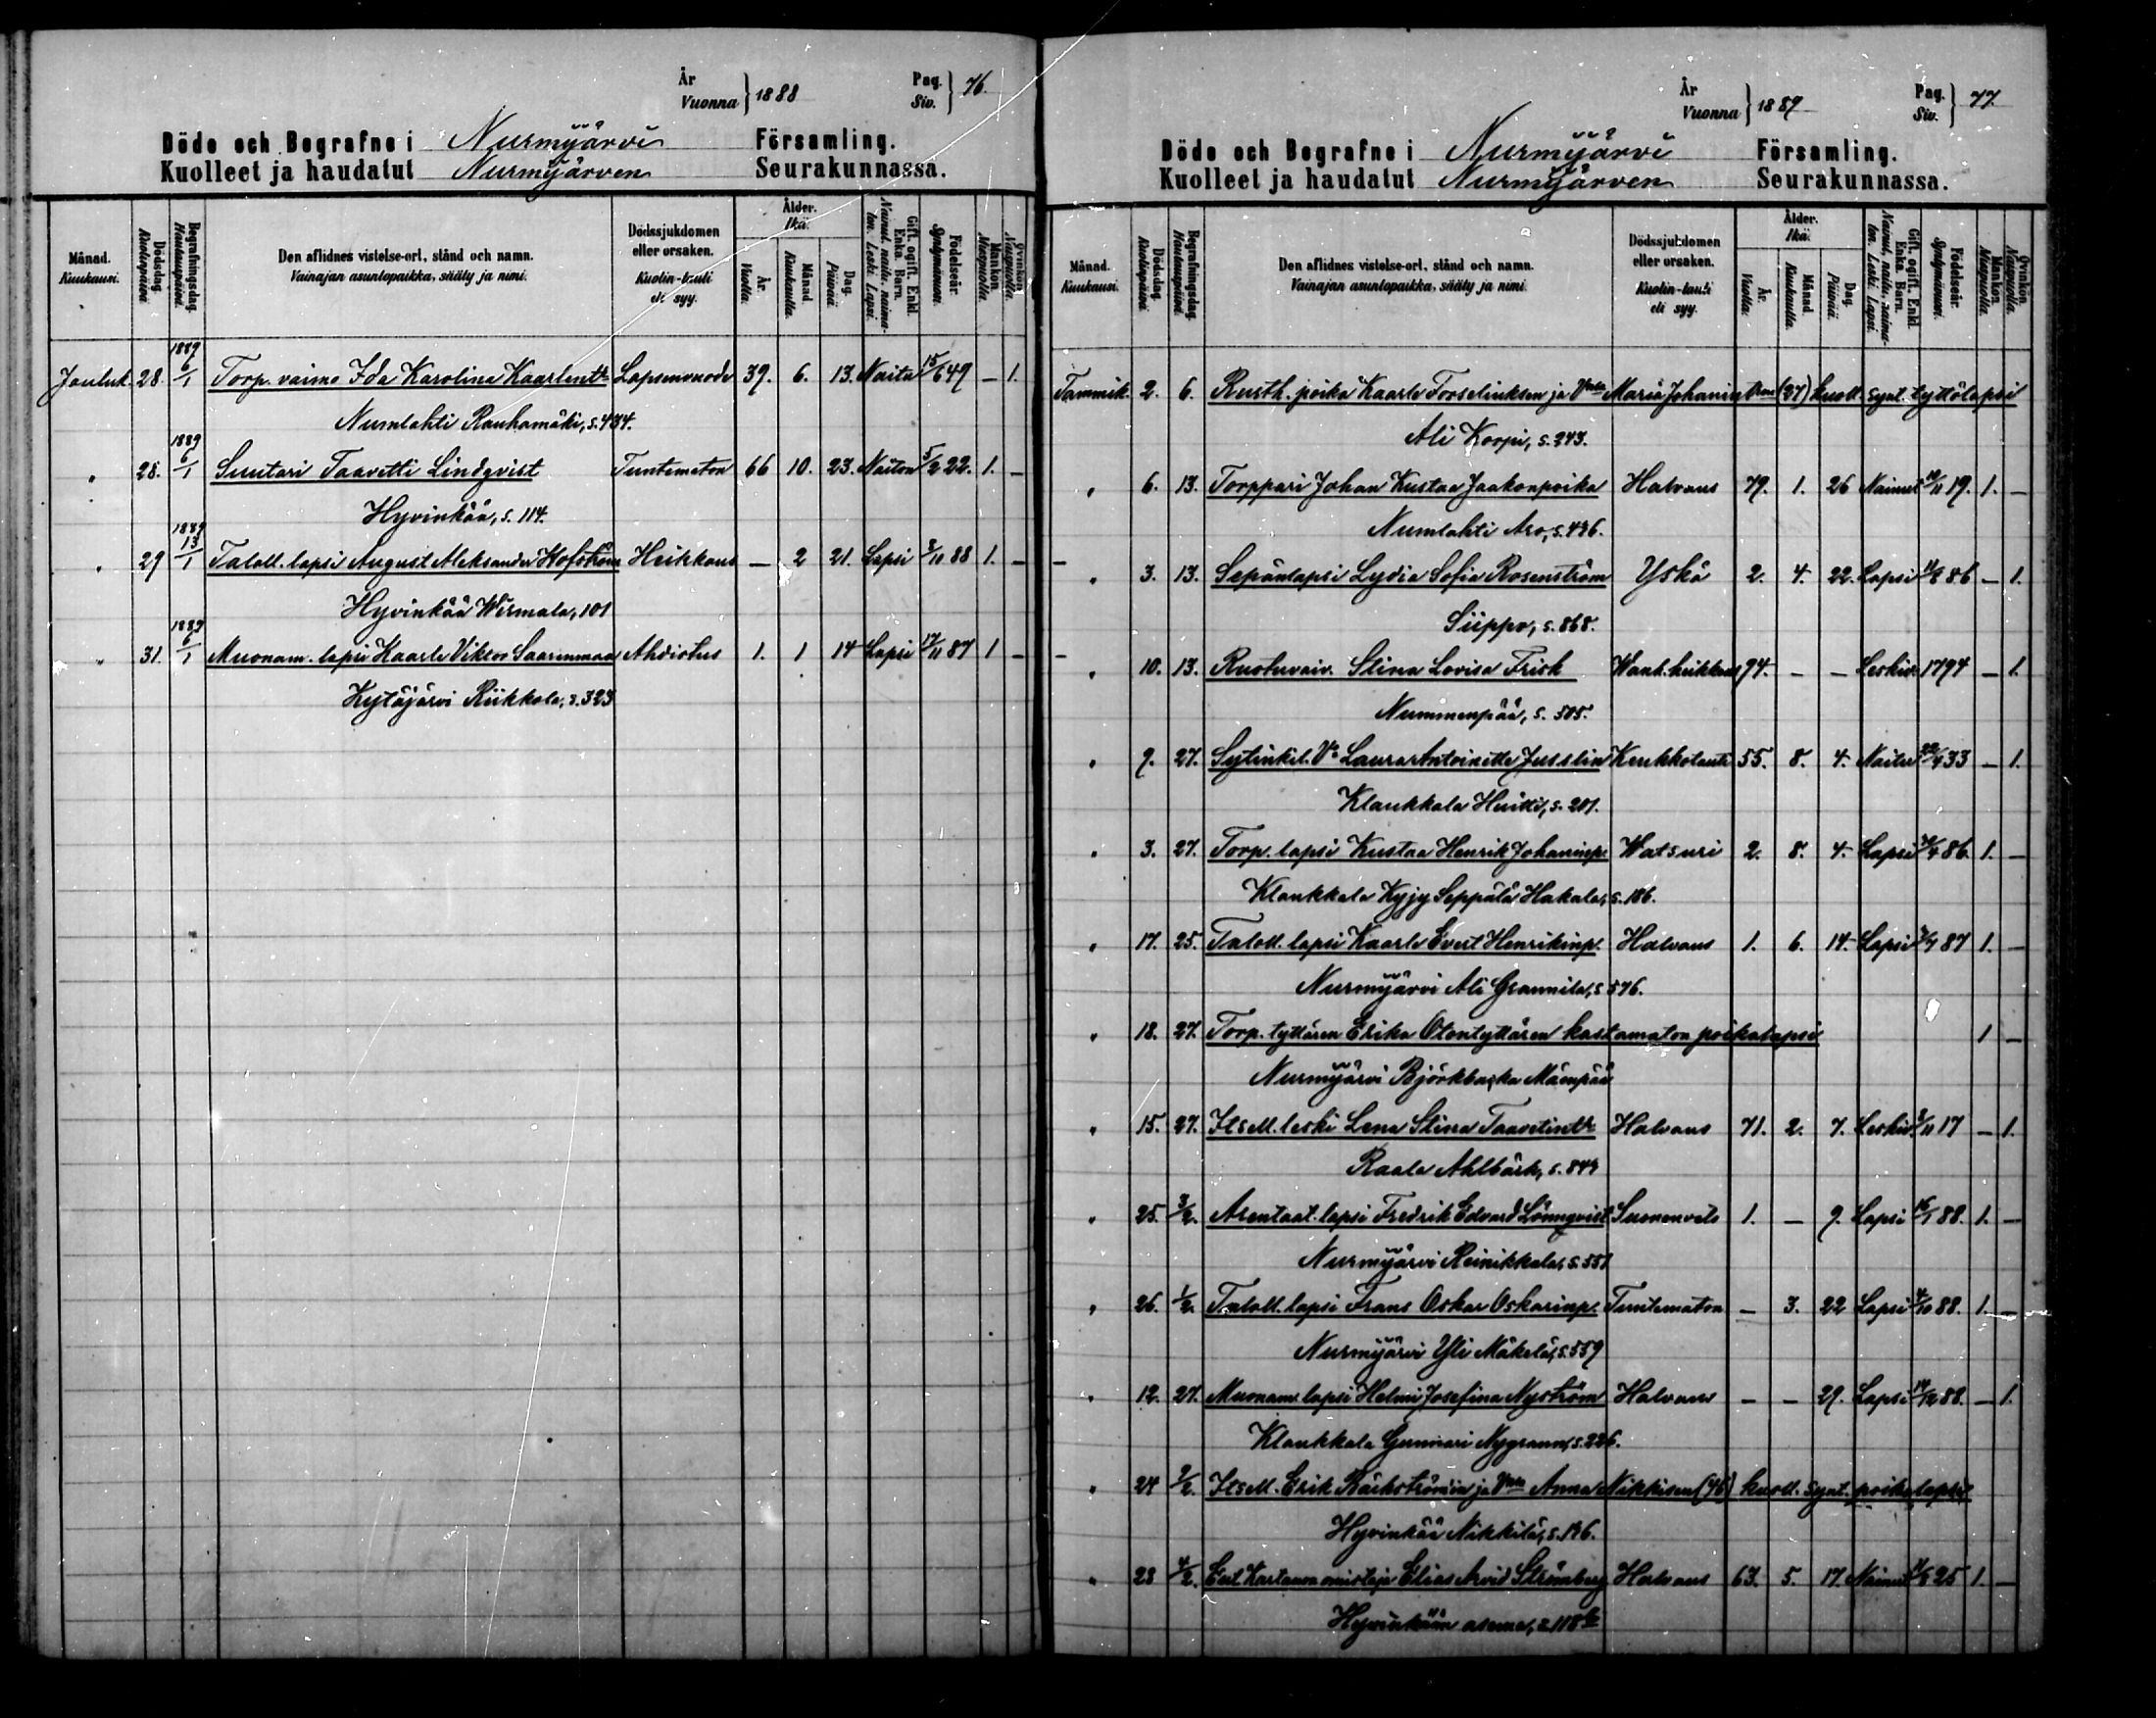 År
Vuonna } 1888
Pag.
Siv. } 76.
Döde och Begrafne i Nurmijärvi Församling.
Kuolleet ja haudatut Nurmijärven Seurakunnassa.
Månad. Kuukausi.
Dödsdag. Kuolinpäivä.
Begrafningsdag. Hautauspäivä.
Den aflidnes vistelse-ort, stånd och namn.
Vainajan asuntopaikka, sääty ja nimi.
Dödssjukdomen eller orsaken.
Kuolin-tauti eli syy.
Ålder. Ikä.
År. Vuotta.
Månad. Kuukautta.
Dag. Päivää.
Gift, ogift. Enkl. Enka. Barn.
Nainut, naitu, naimaton. Leski. Lapsi.
Födelseår. Syntymävuosi.
Mankön. Miespuolia.
Qvinkön. Naispuolia.
Jouluk. 28. 1889 6/1 Torp. vaimo Ida Karolina Kaarlentr. Lapsenvuode 39. 6. 13. Naitu 15/6 49 — 1.
Numlahti Rauhamäki, s. 434.
" 28. 1889 6/1 Suutari Taavetti Lindqvist Tuntematon 66 10. 23. 5/2 22. 1. —
Hyvinkää, s. 114.
" 29 1889 13/1 Taloll. lapsi August Aleksander Hofström Heikkous — 2 21. Lapsi 8/10 88 1. —
Hyvinkää Wirmala, 101
" 31. 1889 6/1 Muonam. lapsi Kaarle Viktor Saarinmaa Ahdistus 1. 1 14 Lapsi 17/11 87 1 —
Kytäjärvi Riikkola, s. 323
År
Vuonna } 1889
Pag.
Siv. } 77.
Döde och Begrafne i Nurmijärvi Församling.
Kuolleet ja haudatut Nurmijärven Seurakunnassa.
Månad. Kuukausi.
Dödsdag. Kuolinpäivä.
Begrafningsdag. Hautauspäivä.
Den aflidnes vistelse-ort, stånd och namn.
Vainajan asuntopaikka, sääty ja nimi.
Dödssjukdomen eller orsaken.
Kuolin-tauti eli syy.
Ålder. Ikä.
År. Vuotta.
Månad. Kuukautta.
Dag. Päivää.
Gift, ogift. Enkl. Enka. Barn.
Nainut, naitu, naimaton. Leski. Lapsi.
Födelseår. Syntymävuosi.
Mankön. Miespuolia.
Qvinkön. Naispuolia.
Tammik. 2. 6. Rusth. poika Kaarle Forselinksen ja Maria (37) kuoll. synt. tyttölapsi
Ali Korpi, s. 243.
" 6. 13. Torppari Johan Kustaa Jaakonpoika Halvaus 79. 1. 26 Nainut 10/11 19. 1. —
Numlahti Aro, s. 446.
" 3. 13. Sepänlapsi Lydia Sofia Rosenström Yskä 2. 4. 22. Lapsi 11/8 86 — 1.
Siippo, s. 868.
" 10. 13. Ruotuvaiv. Stina Lovisa Frisk Wanh. heikkous 94. — — Leskiv. 1794 — 1.
Nummenpää, s. 505.
" 9. 27. Sytinkil. Vo Laura Antoinette Jusslin Keuhkotauti 55. 8. 4. Naitu 33 — 1.
Klaukkala Huitti, s. 201.
" 3. 27. Torp. lapsi Kustaa Henrik Johaninp. Watsuri 2. 8. 4. Lapsi 86. 1. —
Klaukkala Kyjy Seppälä Hakala, s. 186.
" 17. 25. Taloll. lapsi Kaarle Evert Henrikinp. Halvaus 1. 6. 14. Lapsi 3/7 87 1. —
Nurmijärvi Ali Grannila, s. 576.
" 18. 27. Torp. tyttären Erika Otontyttären kastamaton poikalapsi 1 —
Nurmijärvi Björkbacka Mäenpää
" 15. 27. Its M. leski Lena Stina Taavetintr. Halvaus 71. 2. 7. Leskiv. 8/11 17 — 1.
Raala Ahlbäck, s. 849
" 25. 3/2. Arentaat. lapsi Fredrik Edvard Lönnqvist Suonenveto 1. — 9. Lapsi 16/1 88. 1. —
Nurmijärvi Reinikkala, s. 551
" 26. 1/2. Taloll. lapsi Frans Oskar Oskarinp. Tuntematon — 3. 22 Lapsi 4/10 88. 1. —
Nurmijärvi Yli Mäkelä, s. 559
" 12. 27. Muonam. lapsi Helmi Josefina Nyström Halvaus — — 29. Lapsi 14/12 88. — 1.
Klaukkala Gunnari Nygrann, s. 226.
" 24 2/2. Its M. Erik Bäckströmin ja Anna Nikkisen (46) kuoll. synt. poikalapsi
Hyvinkää Nikkilä, s. 136.
" 28 4/2. Kartanon omistaja Elias Arvid Strömberg Halvaus 63. 5. 17. Nainut 11/8 25 1. —
Hyvinkään asema, s. 118